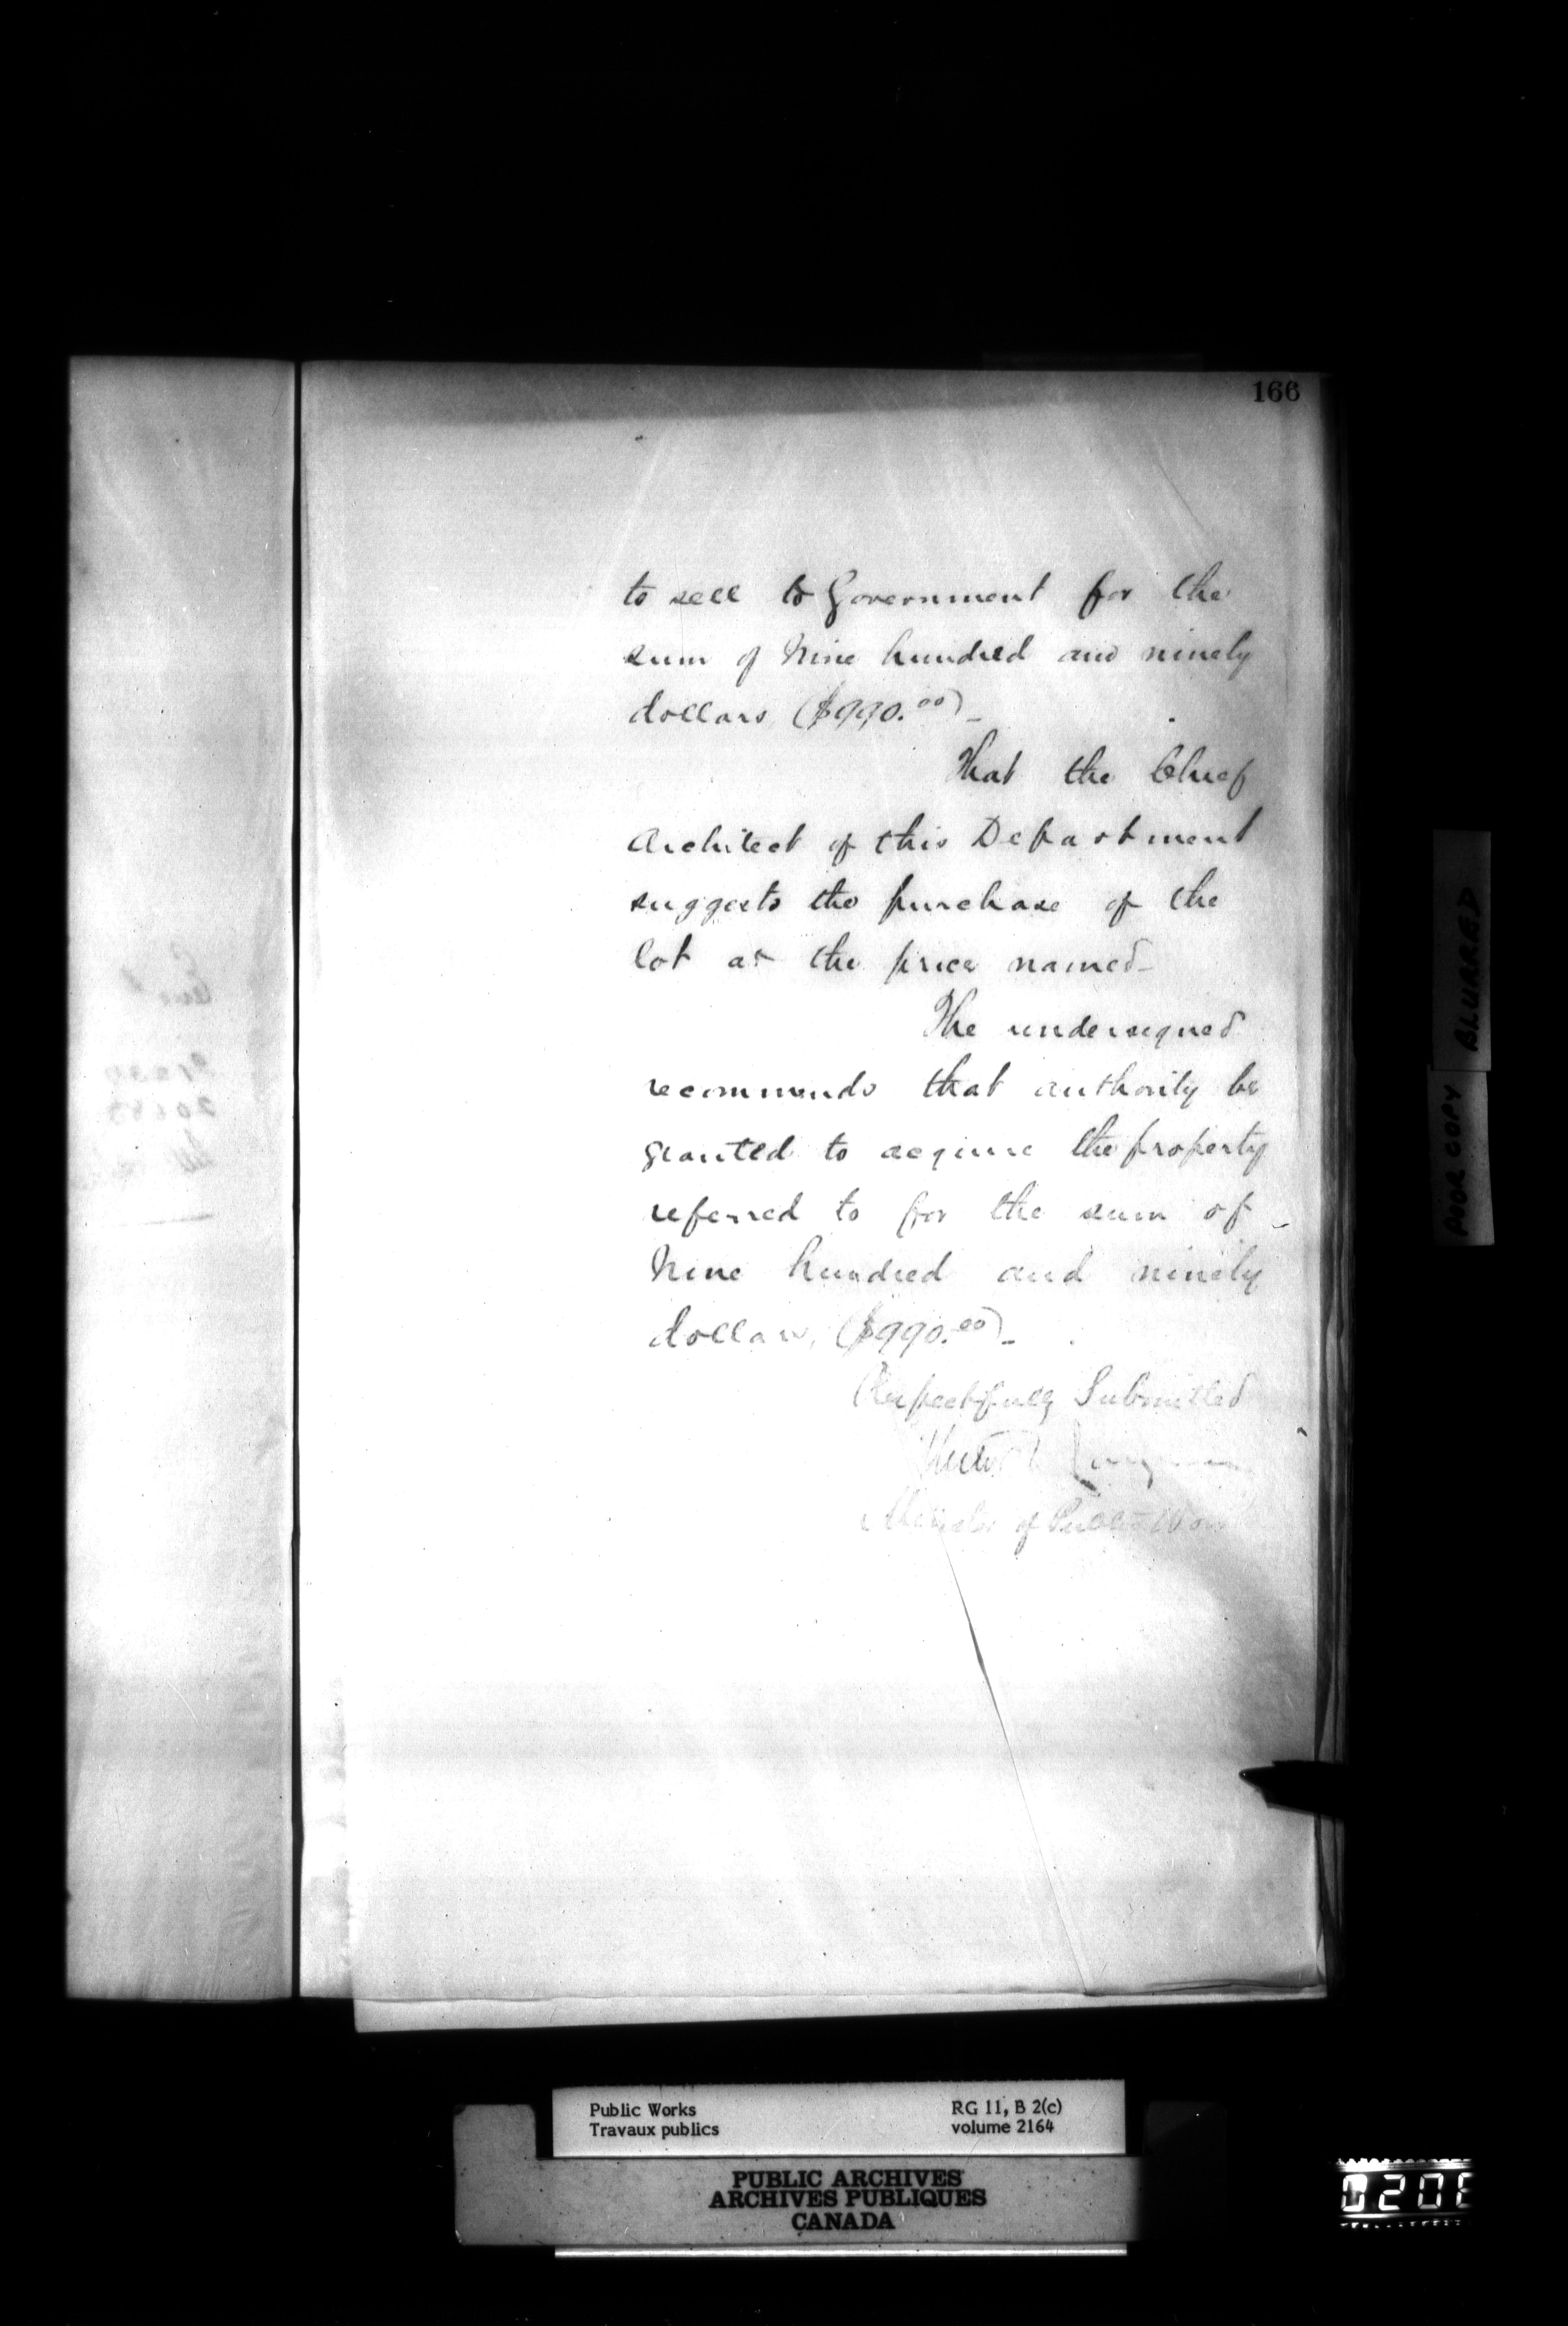 166
to sell to Government for the
sum of Nine hundred and ninety
dollars ($990.00)_
That the Chief
Architect of this Department
suggests the purchase of the
lot at the price named_
The undersigned
recommends that authority be
granted to acquire the property
referred to for the sum of
Nine hundred and ninety
dollars, ($990.00)_
Respectfully Submitted
Minister of Public
BLURRED
POOR COPY
Public Works
Travaux publics
RG 11, B 2(c)
volume 2164
PUBLIC ARCHIVES
ARCHIVES PUBLIQUES
CANADA